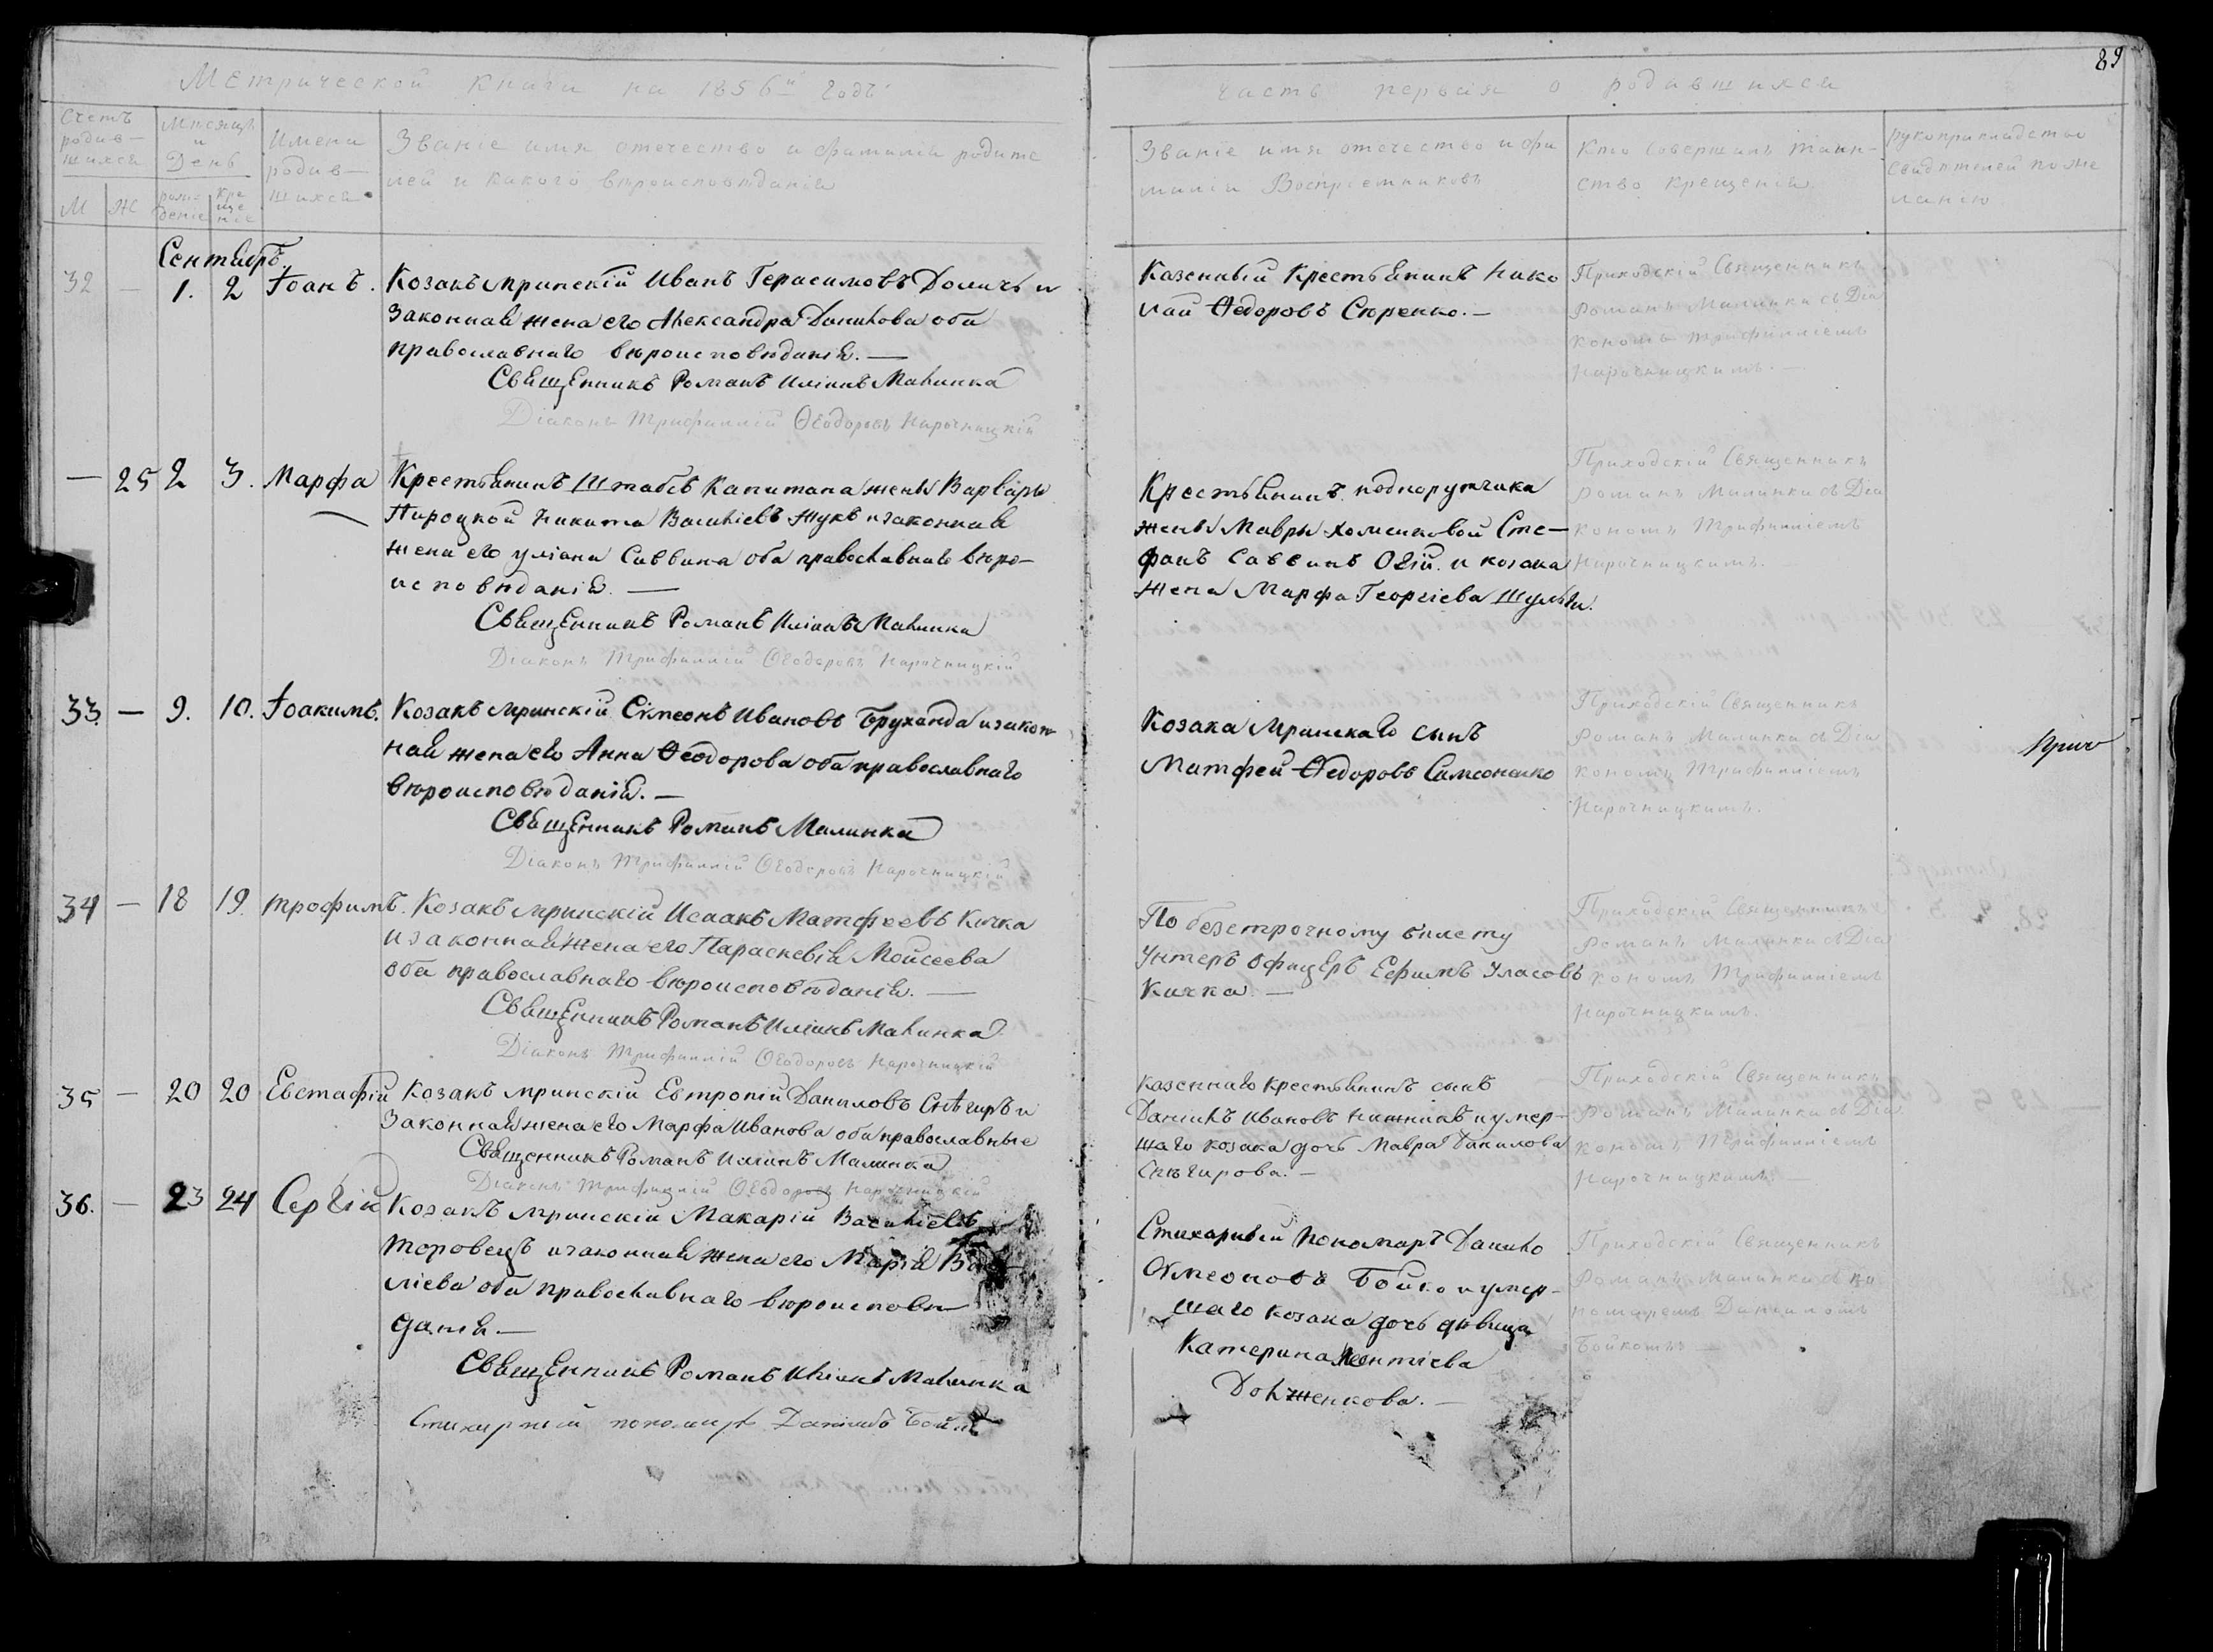 89
Метрической Книги на 1856й годъ
часть первая о родившихся
Счетъ родив-шихся
М Ж
Мѣсяцъ и День
рож-деніе Кре-ще-ніе
Имена родив-шихся
Званіе имя отечество и фамилія родите
лей и какого вѣроисповѣданія
Званіе имя отечество и фа
милія Воспріемниковъ
Кто совершалъ таин-
ство крещенія
рукоприкладство
свидѣтелей по же
ланію
Сентябрь
32 — 1. 2 Іоанъ. Козакъ мринскій Иванъ Герасимовъ и
Законная жена его Александра Данилова оба
православнаго вѣроисповѣданія. —
Священникъ Романъ Иліинъ Малинка
Діаконъ Трифиллій Ѳеодоровъ Нарочницкій
Казенный Крестьянинъ Нико
лай Ѳедоровъ Сюренко. —
Приходскій Священникъ
Романъ Малинка съ Діа
кономъ Трифилліемъ
Нарочницкимъ. —
— 25 2 3. Марфа Крестьянинъ Штабсъ Капитана жены Варвары
Пироцкой Никита Василіевъ Жукъ и законная
жена его уліана Саввина оба православнаго вѣро-
исповѣданія. —
Священникъ Романъ Иліинъ Малинка
Діаконъ Трифиллій Ѳеодоровъ Нарочницкій
Крестьянинъ подпоручика
жены Мавры Сте-
фанъ Саввинъ и козака
жена Марфа Георгіева
Приходскій Священникъ
Романъ Малинка съ Діа
кономъ Трифилліемъ
Нарочницкимъ.
33. — 9. 10. Іоакимъ. Козакъ мринскій Сѵмеонъ Ивановъ Бруханда и закон
ная жена его Анна Ѳеодорова оба православнаго
вѣроисповѣданія. —
Священникъ Романъ Малинка
Діаконъ Трифиллій Ѳеодоровъ Нарочницкій
Козака Мринскаго сынъ
Матфей Ѳедоровъ Симоненко
Приходскій Священникъ
Романъ Малинка съ Діа
кономъ Трифилліемъ
Нарочницкимъ.
34 — 18 19. Трофимъ. Козакъ мринскій Исаакъ Матфеевъ Кичка
и законная жена его Параскевія Моисеева
оба православнаго вѣроисповѣданія. —
Священникъ Романъ Иліинъ Малинка
Діаконъ Трифиллій Ѳеодоровъ Нарочницкій
По безсрочному билету
Унтеръ офицеръ Ефимъ Уласовъ
Кичка —
Приходскій Священникъ
Романъ Малинка съ Діа
кономъ Трифилліемъ
Нарочницкимъ.
35 — 20 20 Евстафій Козакъ мринскій Евтропій Даниловъ Снѣгиръ и
Законная жена его Марфа Иванова оба православные
Священникъ Романъ Илиинъ Малинка
Діаконъ Трифиллій Ѳеодоровъ Нарочницкій
казеннаго крестьянинъ сынъ
Даніилъ Ивановъ и умер-
шаго козака дочь Мавра Данилова
Снѣгирова. —
Приходскій Священникъ
Романъ Малинка съ Діа
кономъ Трифилліемъ
Нарочницкимъ. —
36. — 23 24 Сергій Козакъ мринскій Макарій Василіевъ
Теровецъ и законная жена его Марія
ліева оба православнаго вѣроисповѣ
данія. —
Священникъ Романъ Иліинъ Малинка
Стихарный пономарь Даніилъ Бойко
Стихарный Пономарь Данило
Сѵмеоновъ Бойко и умер-
шаго козака дочь дѣвица
Катерина Леонтіева
Долженкова. —
Приходскій Священникъ
Романъ Малинка съ по
номаремъ Данииломъ
Бойкомъ —